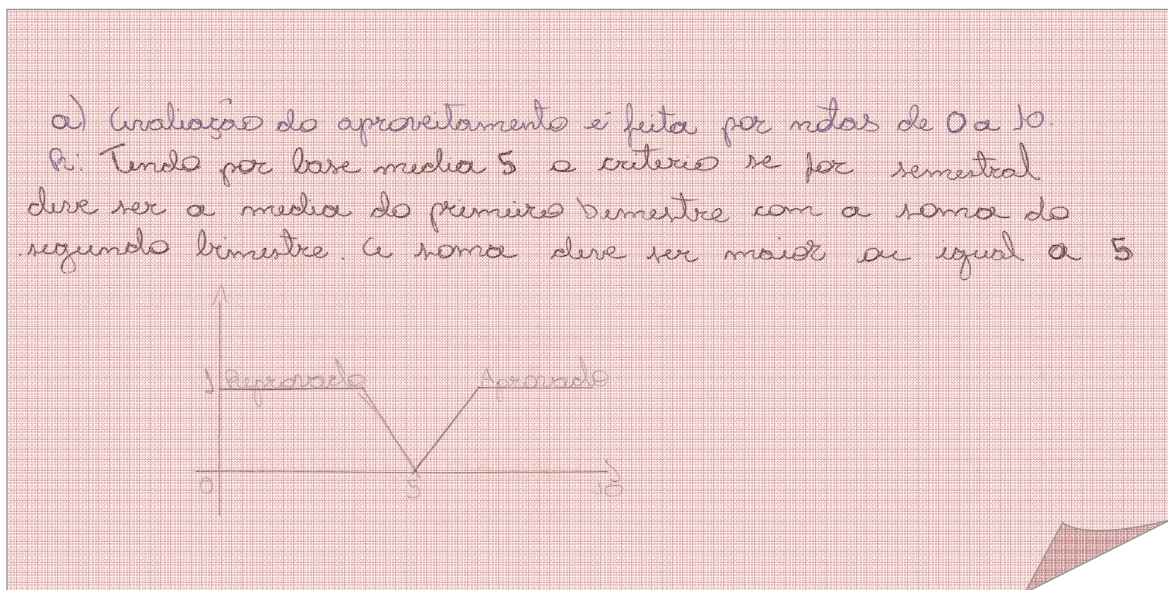 a) Avaliação do aproveitamento é feita por notas de 0 a 10.
R: Tendo por base media 5 o criterio se for semestral
deve ser a media do primeiro bimestre com a soma do
segundo bimestre. A soma deve ser maior ou igual a 5
1 Reprovado Aprovado
0 5 10